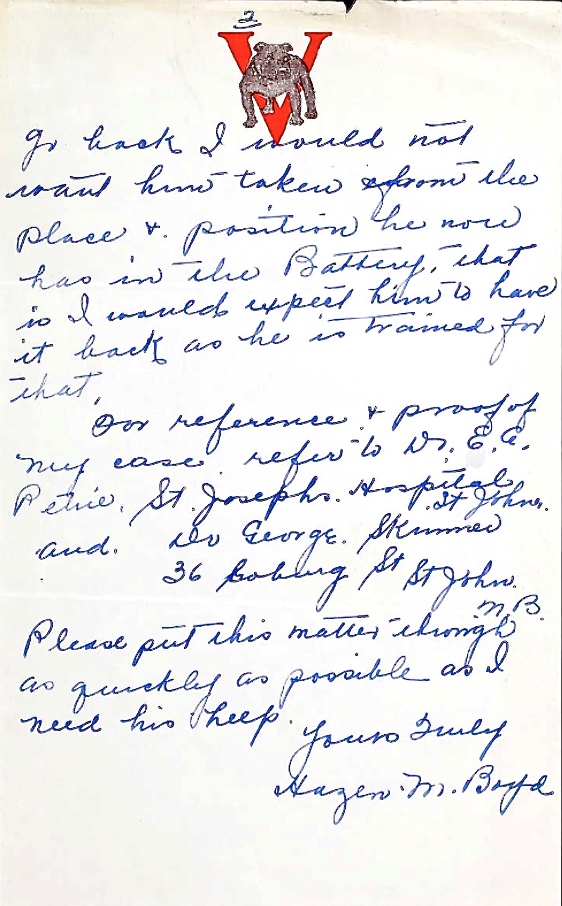 2
V
go back I would not
want him taken from the
place & position he now
has in the Battery, that
is I would expect him to have
it back as he is trained for
that.
For reference & proof of
my case refer to Dr. E. A.
Petrie. St. Josephs. Hospital
St John.
and. Dr George. Skinner
36 Coburg St St John.
N.B.
Please put this matter through
as quickly as possible as I
need his help.
Yours Truly
Hazen M. Boyd